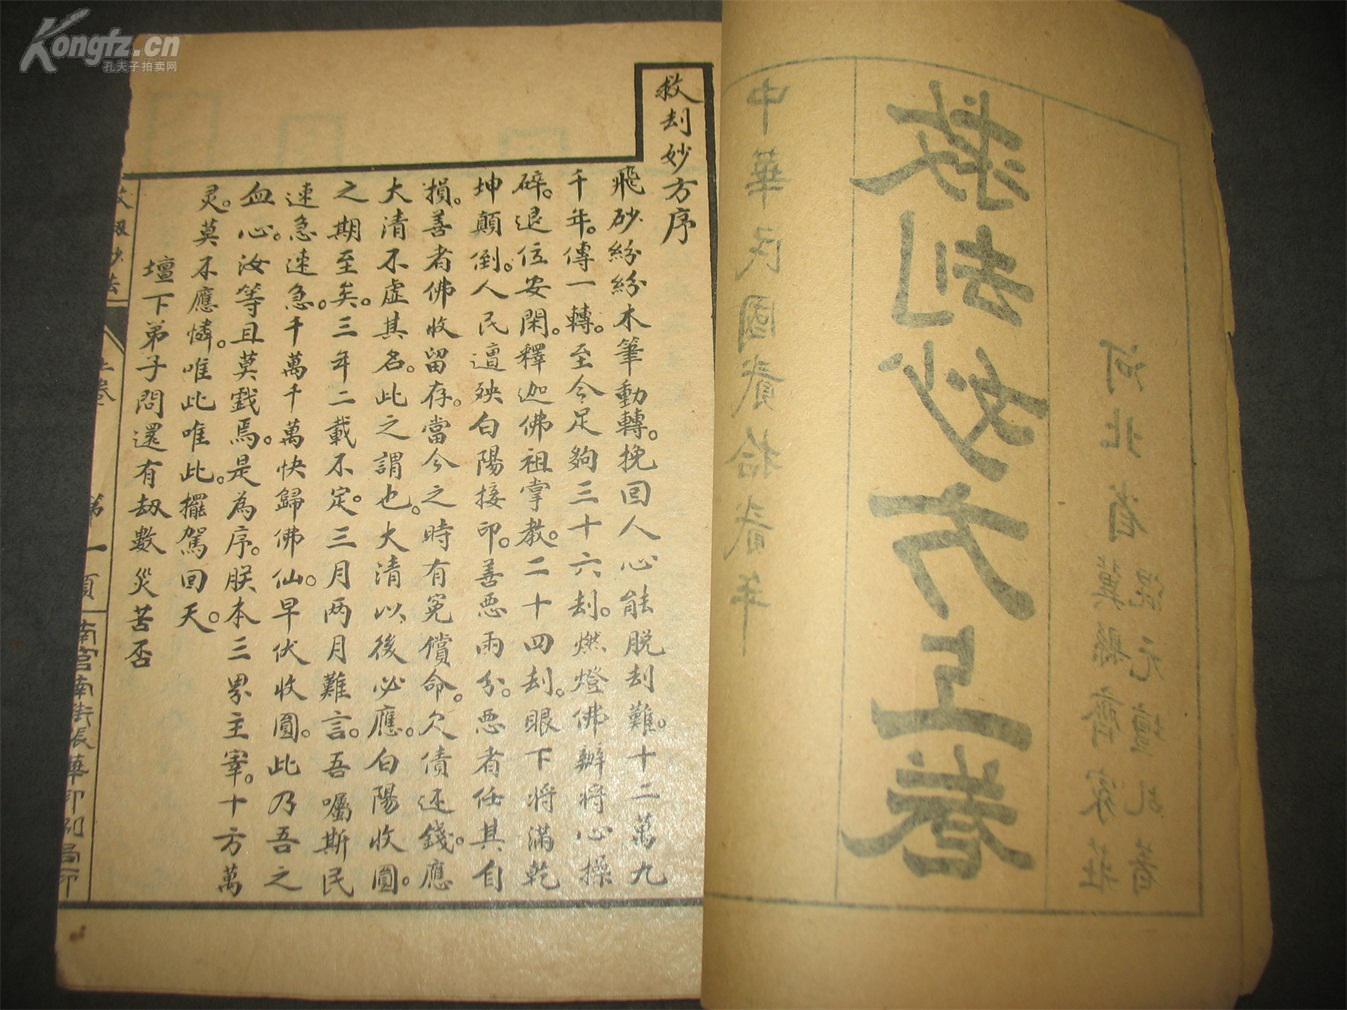 Kongfz.cn
孔夫子拍卖网
中華民國貳拾貳年
救刦妙方上卷
河北省冀縣齊家莊
混元壇乩著
救刦妙方序
飛砂紛紛木筆動轉。挽回人心能脱刦難。十二萬九
千年。傳一轉。至今足夠三十六刦。燃燈佛辦將心操
碎。退位安閑。釋迦佛祖掌教。二十四刦。眼下將滿乾
坤顛倒。人民遭殃白陽接印。善悪兩分。悪者任其自
損。善者佛收留存。當今之時有冤償命。欠債还錢。應
大清不虚其名。此之謂也。大清以後必應。白陽收圓。
之期至矣。三年二載不定。三月两月難言。吾囑斯民
速急速急。千萬千萬快歸佛仙。早伏收圓。此乃吾之
血心。汝等且莫戲焉。是為序。朕本三界主宰。十方萬
灵。莫不應憐。唯此唯此。擺駕回天。
壇下弟子問還有劫數災苦否
上卷
第一頁
南宫南街張華印刷局印